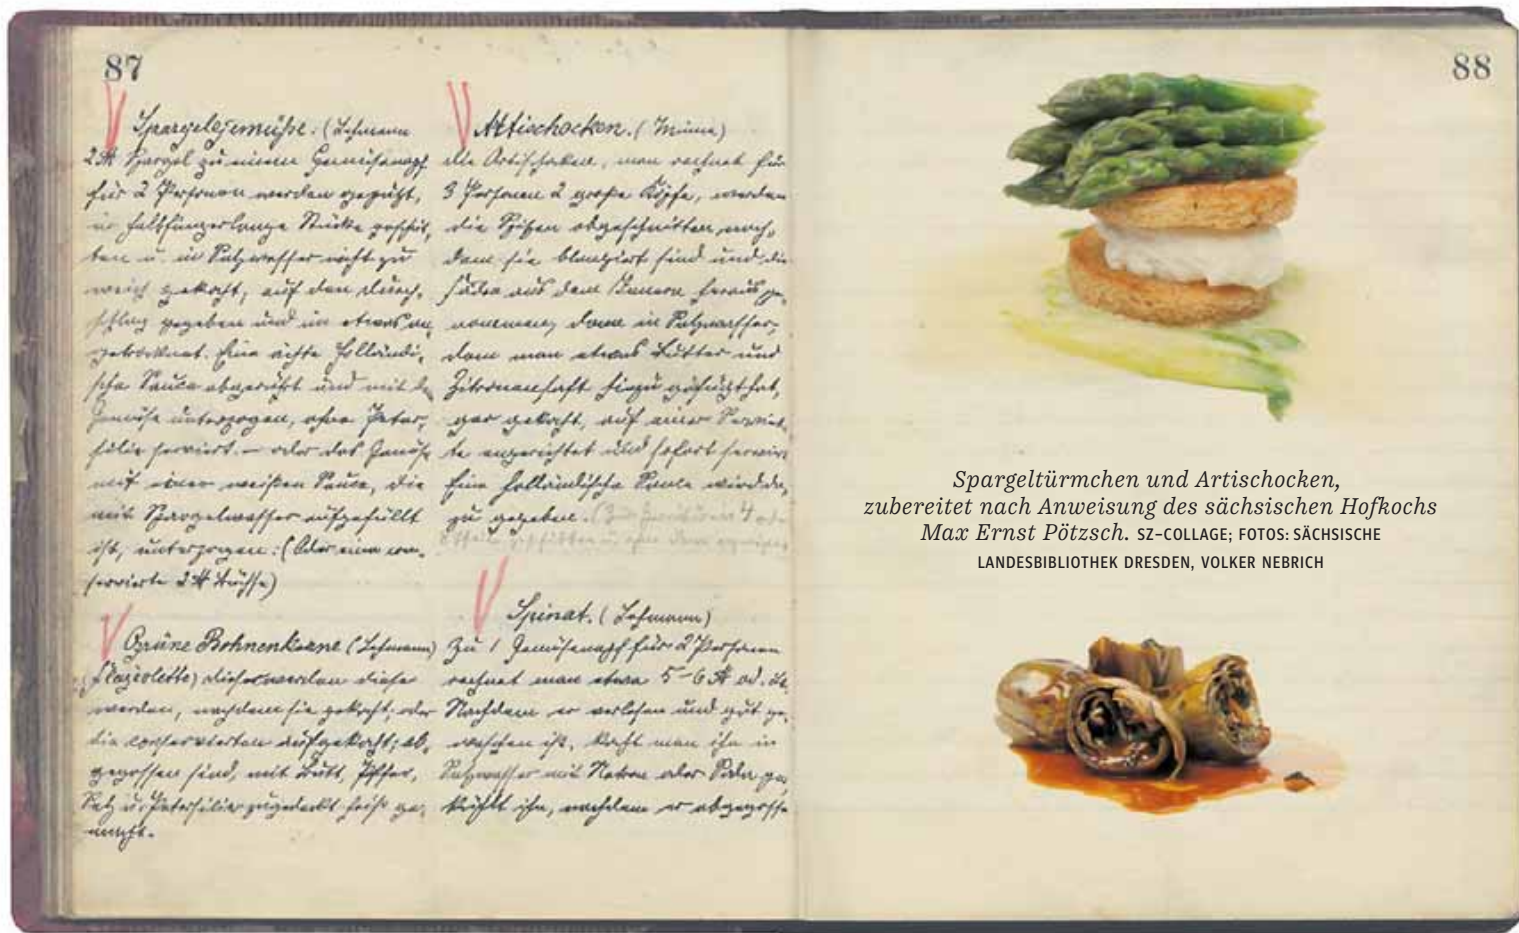 87
Spargelgemüse. (Lehmann
2 ℔ Spargel zu einem Gemüsenapf
für 2 Personen werden geputzt,
in halbfingerlange Stücke geschnit,
ten u. in Salzwasser nicht zu
weich gekocht, auf den Durch,
schlag gegeben und um etwas an
getrocknet. Eine ächte holländi,
sche Sauce abgerührt und mit d
Gemüse unterzogen, ohne Peter,
silie serviert. – oder das Gemüse
mit einer weißen Sauce, die
mit Spargelwasser aufgefüllt
ist, unterzogen: (Oder eine con,
servierte 2 ℔ Büchse)
Grüne Bohnenkerne (Lehmann)
Flageoletts) werden diese
werden, nachdem sie gekocht, oder
die conservierten aufgekocht; ab,
gegossen sind, mit Butt, Pfeffer,
Salz u. Petersilie zugedeckt heiß ge,
macht.
Artischocken. (Mime)
die Artischoken, man rechnet für
3 Personen 2 große Köpfe, werden
die Spitzen abgeschnitten, nach,
dem sie blangiert sind und die
Fäden aus dem Innern heraus ge,
nommen, dann in Salzwasser,
dem man etwas Butter und
Zitronensaft hinzu gefügt hat,
gar gekocht, auf einer Serviet,
te angerichtet und sofort servirt
Eine holländische Sauce wird da,
zu gegeben.
Spinat. (Lehmann)
Zu 1 Gemüsenapf für 2 Personen
rechnet man etwa 5–6 ℔ od.
Nachdem er verlesen und gut ge,
waschen ist, kocht man ihn in
Salzwasser mit Natron oder Soda
kühlt ihn, nachdem er abgegosse
88
Spargeltürmchen und Artischocken,
zubereitet nach Anweisung des sächsischen Hofkochs
Max Ernst Pötzsch. SZ-COLLAGE; FOTOS: SÄCHSISCHE
LANDESBIBLIOTHEK DRESDEN, VOLKER NEBRICH